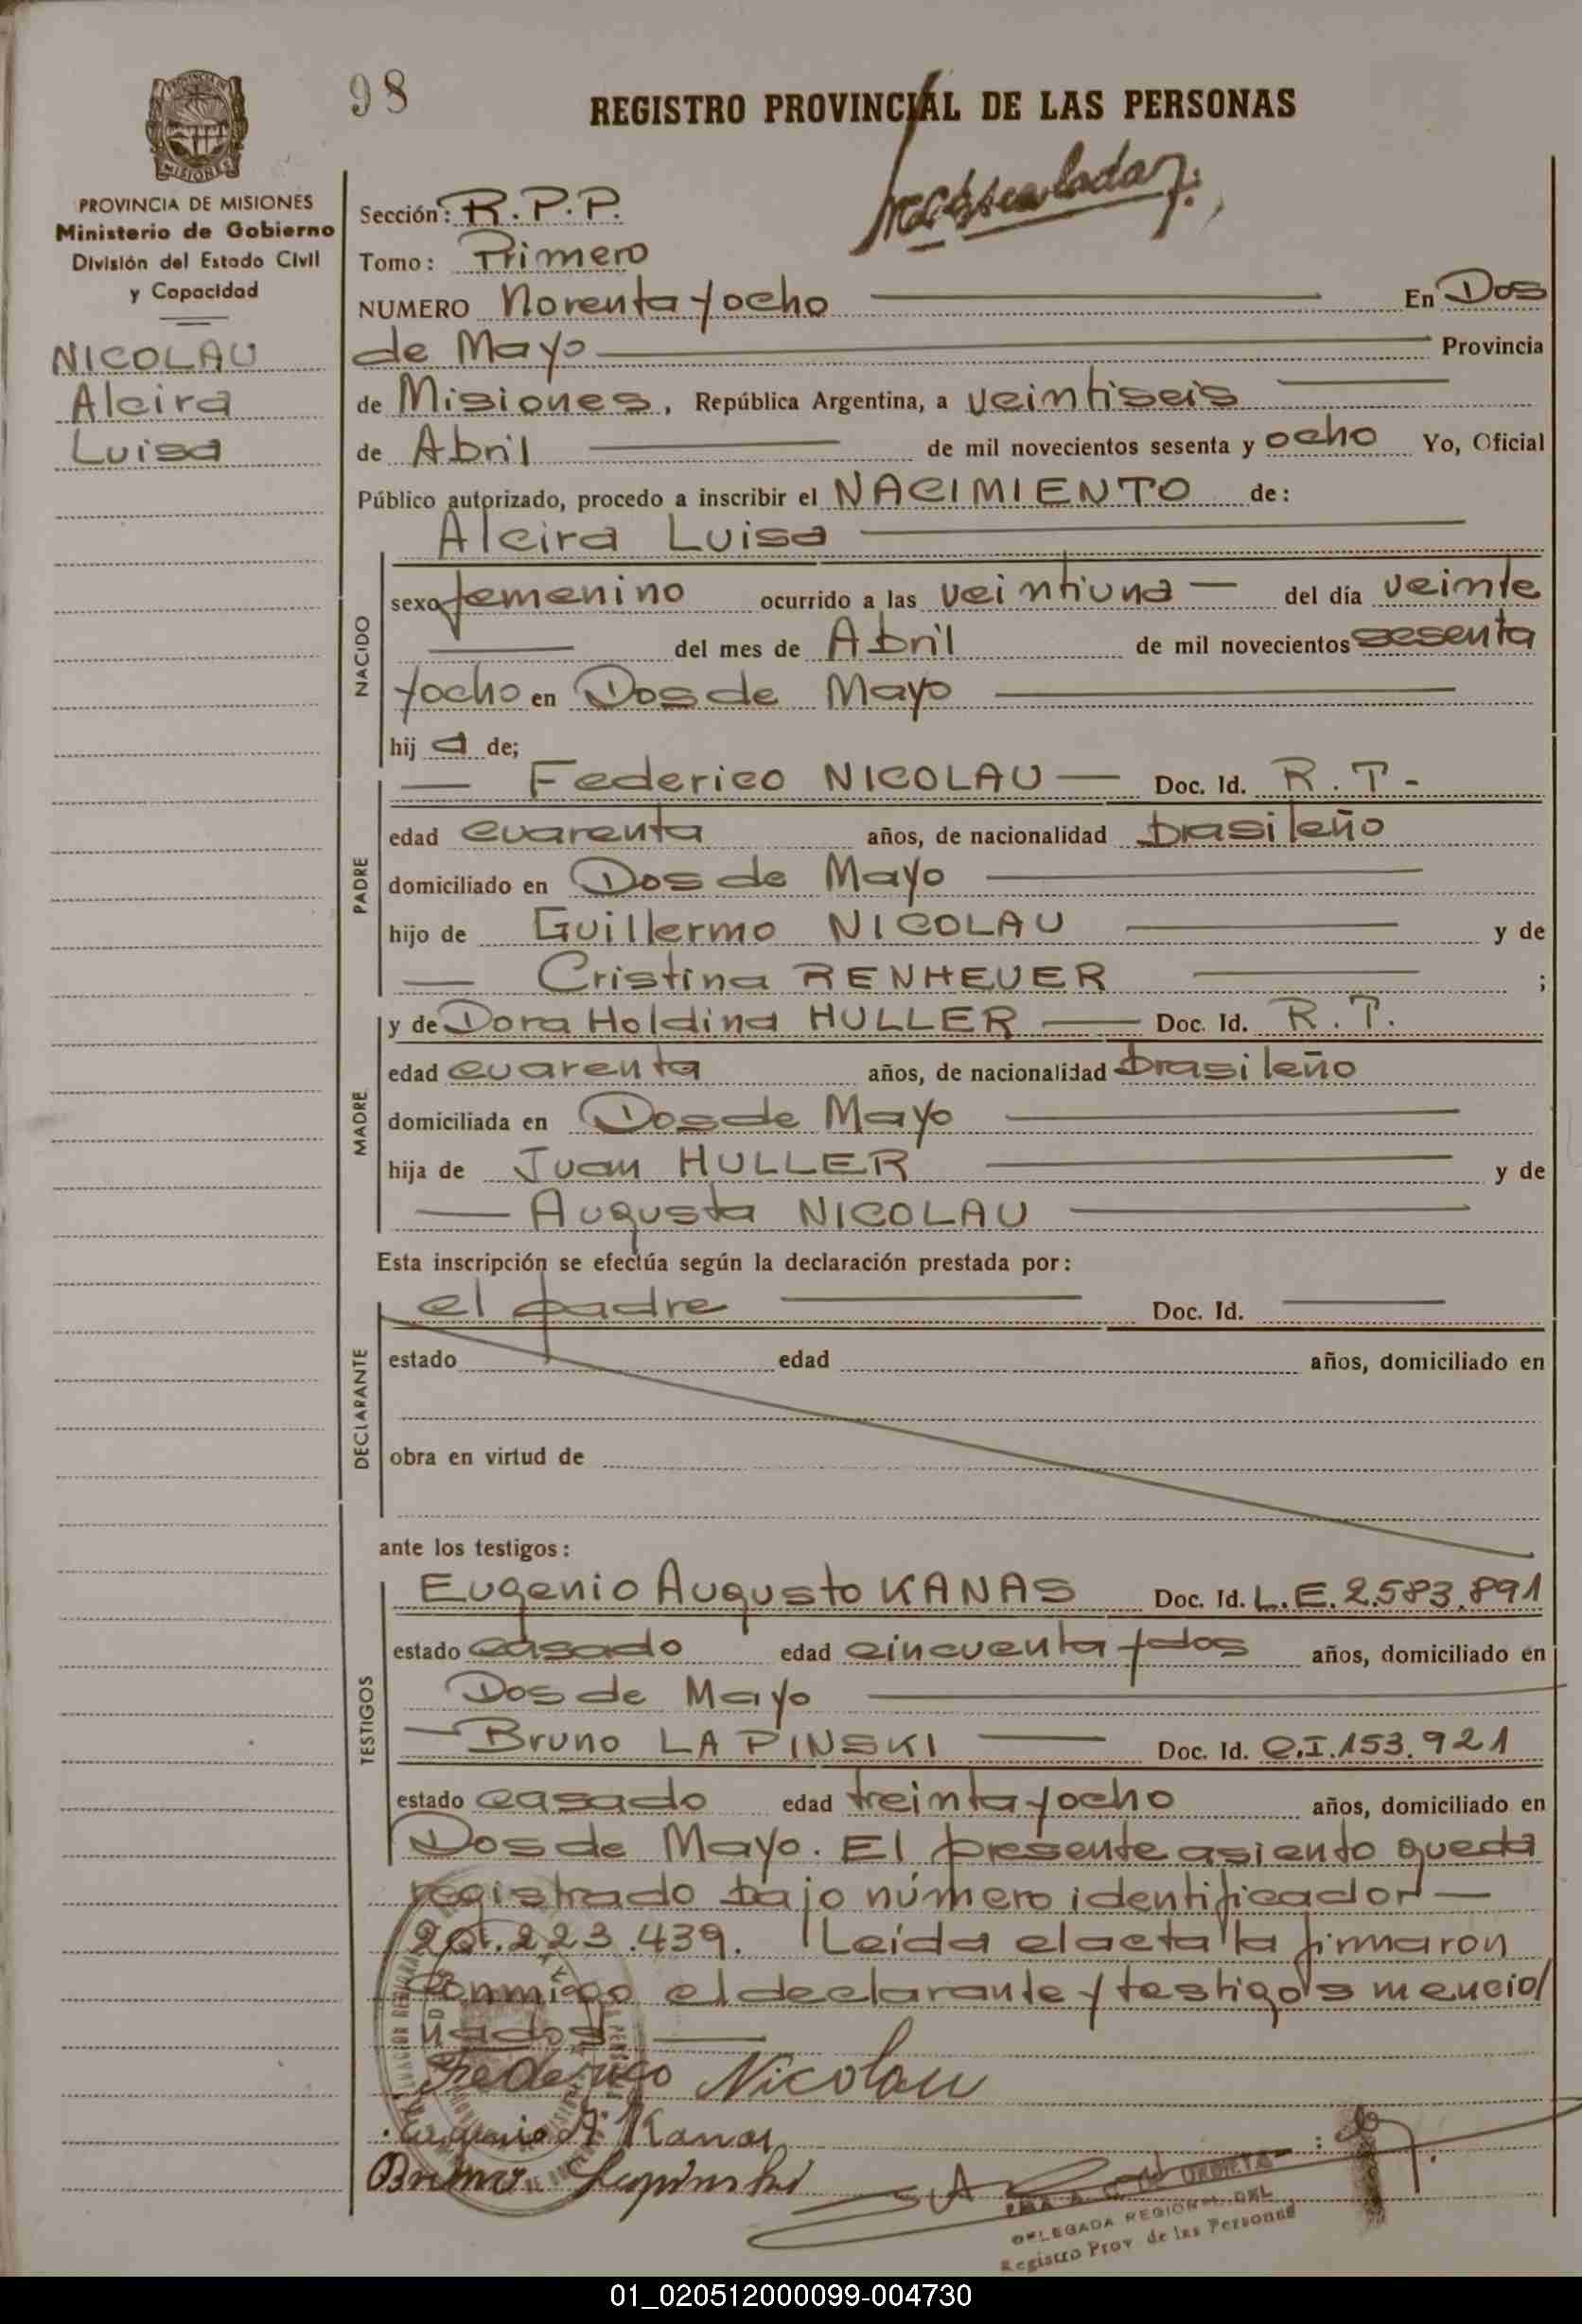 98
REGISTRO PROVINCIAL DE LAS PERSONAS
PROVINCIA DE MISIONES
Ministerio de Gobierno
División del Estado Civil
y Capacidad
NICOLAU
Alcira
Luisa
Sección: R.P.P.
Tomo: Primero
NUMERO Noventa y ocho En Dos
de Mayo Provincia
de Misiones, República Argentina, a veintiseis
de Abril de mil novecientos sesenta y ocho Yo, Oficial
Público autorizado, procedo a inscribir el NACIMIENTO de:
Alcira Luisa
NACIDO
sexo femenino ocurrido a las veintiuna del día veinte
del mes de Abril de mil novecientos sesenta
y ocho en Dos de Mayo
hij a de;
PADRE
Federico NICOLAU Doc. Id. R.T.
edad cuarenta años, de nacionalidad brasileño
domiciliado en Dos de Mayo
hijo de Guillermo NICOLAU y de
Cristina RENHEUER ;
MADRE
y de Dora Holdina HULLER Doc. Id. R.T.
edad cuarenta años, de nacionalidad brasileño
domiciliada en Dos de Mayo
hija de Juan HULLER y de
Augusta NICOLAU
Esta inscripción se efectúa según la declaración prestada por:
DECLARANTE
el padre Doc. Id.
estado edad años, domiciliado en
obra en virtud de
ante los testigos:
TESTIGOS
Eugenio Augusto KANAS Doc. Id. L.E. 2.583.891
estado casado edad cincuenta y dos años, domiciliado en
Dos de Mayo
Bruno LAPINSKI Doc. Id. C.I. 153.921
estado casado edad treinta y ocho años, domiciliado en
Dos de Mayo. El presente asiento queda
registrado bajo número identificador
20.223.439. Leída el acta la firmaron
conmigo el declarante y testigos mencio/
nados
Federico Nicolau
Eugenio A. Kanas
Bruno Lapinski
DELEGADA REGIONAL DEL
Registro Prov. de las Personas
01_020512000099-004730